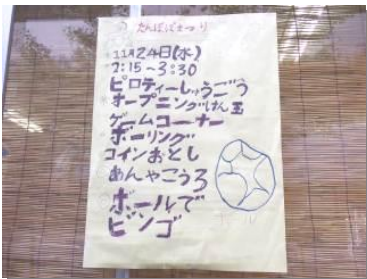 たんぽぽまつり
11月24日(水)
2:15~3:30
ピロティーしゅうごう
オープニングけん玉
ゲームコーナー
ボーリング
コインおとし
あんやこうろ
ボールで
ビンゴ